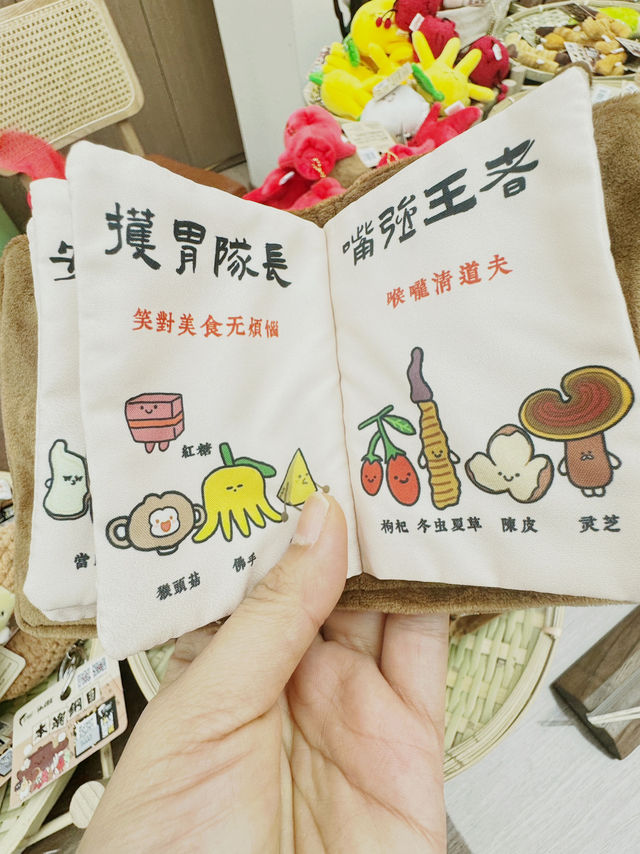 擭胃隊長
笑對美食无煩惱
紅糖
猴頭菇
佛手
當
嘴強王者
喉嚨清道夫
枸杞 冬虫夏草 陳皮 灵芝